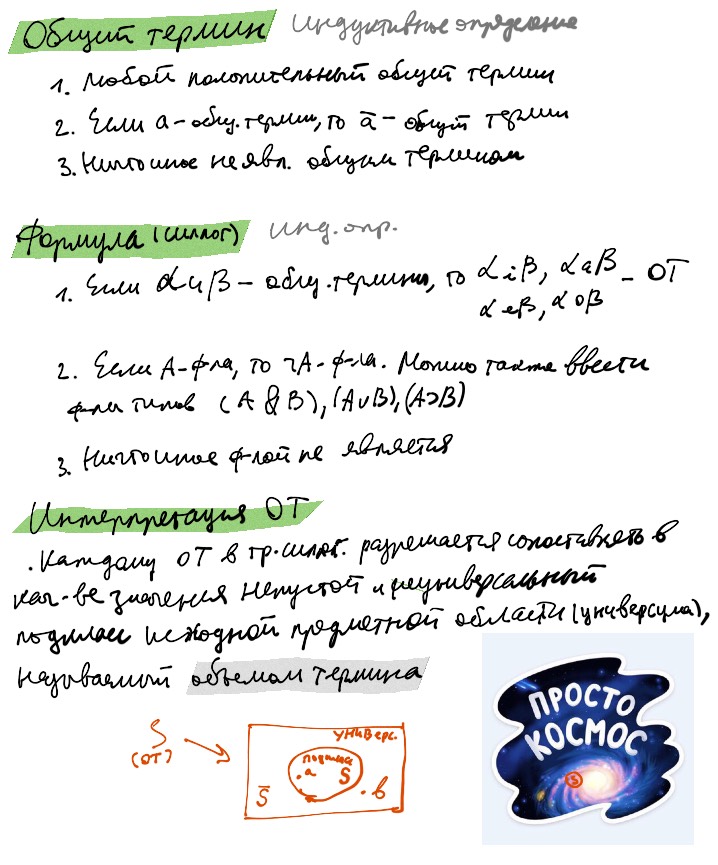 Общий термин Индуктивное определение
1. Любой положительный общий термин
2. Если a - общ. термин, то a̅ - общий термин
3. Ничто иное не явл. общим термином
Формула (силлог) Инд. опр.
1. Если α и β - общ. термины, то α i β, α a β - ОТ
α e β, α o β
2. Если A - ф-ла, то ¬A - ф-ла. Можно также ввести
ф-лы типов (A & B), (A ∨ B), (A ⊃ B)
3. Ничто иное ф-лой не является
Интерпретация ОТ
. Каждому ОТ в тр. силлог. разрешается сопоставлять в
кач-ве значения непустой и неуниверсальный
подкласс исходной предметной области (универсума),
называемый объемом термина
S
(ОТ)
универс.
подкласс
. a S
S̅ . b
ПРОСТО
КОСМОС
S